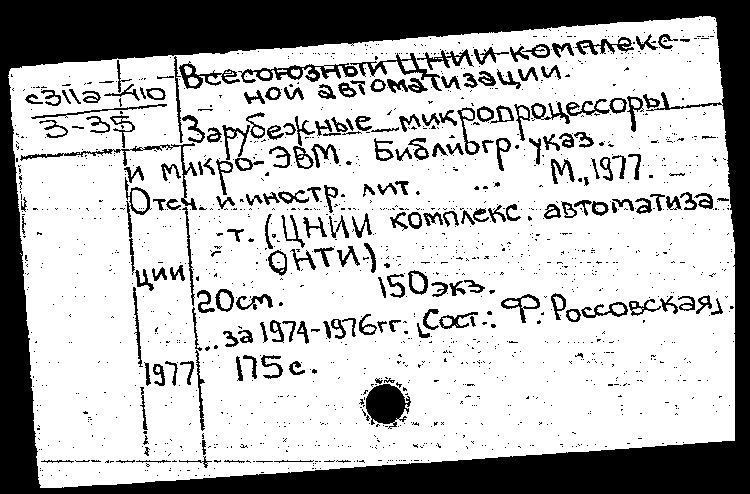 Всесоюзный ЦНИИ комплекс-
ной автоматизации.
с311а-410
3-35
Зарубежные микропроцессоры
и микро-ЭВМ. Библиогр. указ.
Отеч. и иностр. лит. ... М., 1977.
-т. (ЦНИИ комплекс. автоматиза-
ции. ОНТИ).
20см. 150экз.
...за 1974-1976гг. [Сост.: Ф. Россовская].
1977. 175 с.